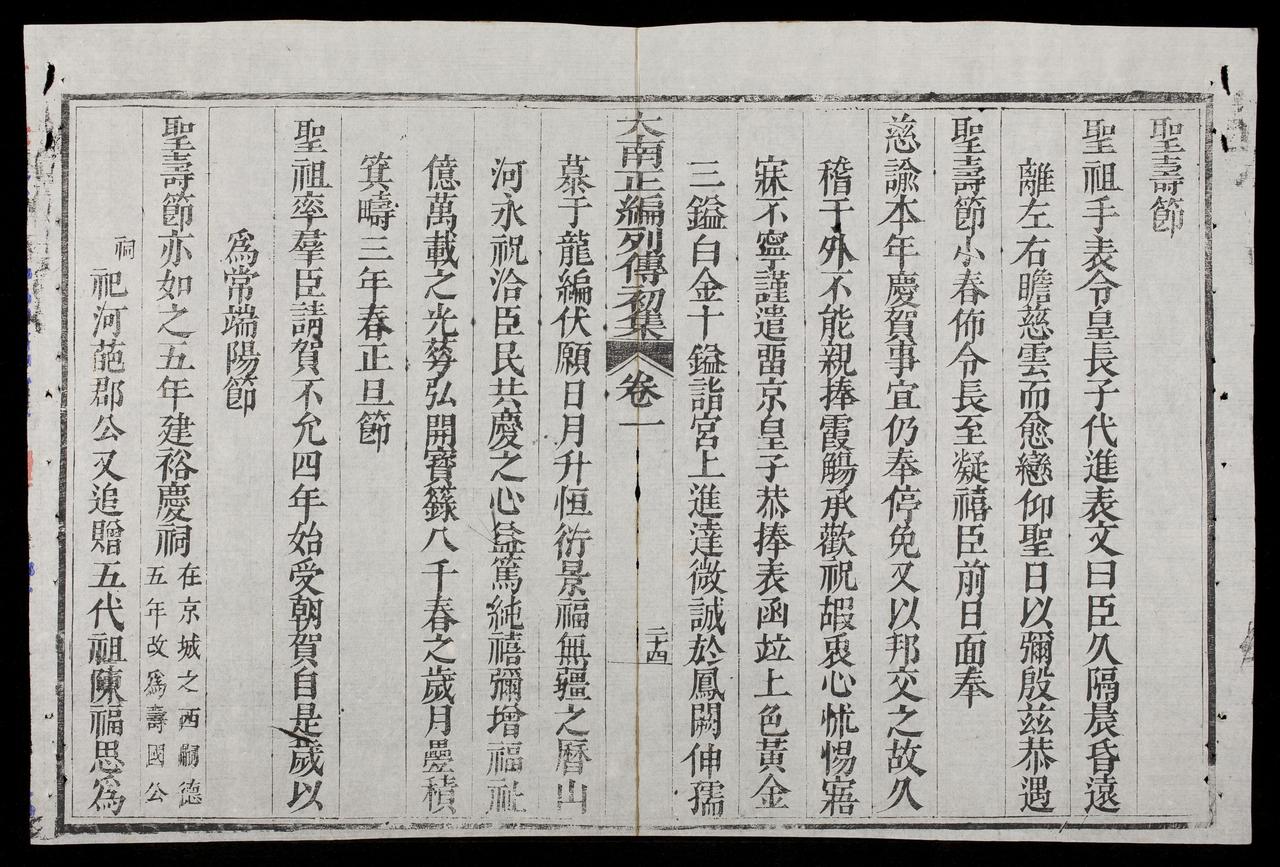 聖壽節
聖祖手表令皇長子代進表文曰臣久隔晨昏遠
離左右瞻慈雲而愈戀仰聖日以彌殷茲恭遇
聖壽節小春佈令長至凝禧臣前日面奉
慈諭本年慶賀事宜仍奉停免又以邦交之故久
稽于外不能親捧霞觴承歡祝嘏衷心怵惕寤
寐不寧謹遣畱京皇子恭捧表函竝上色黃金
三鎰白金十鎰詣宮上進達微誠於鳳闕伸孺
大南正編列傳初集 卷一 二十四
慕于龍編伏願日月升恒衍景福無疆之曆山
河永祝洽臣民共慶之心益篤純禧彌增福祉
億萬載之光蕚弘開寶籙八千春之歲月疊積
箕疇三年春正旦節
聖祖率羣臣請賀不允四年始受朝賀自是歲以
爲常端陽節
聖壽節亦如之五年建裕慶祠在京城之西嗣德五年故爲壽國公
祠祀河葩郡公又追贈五代祖陳福思爲